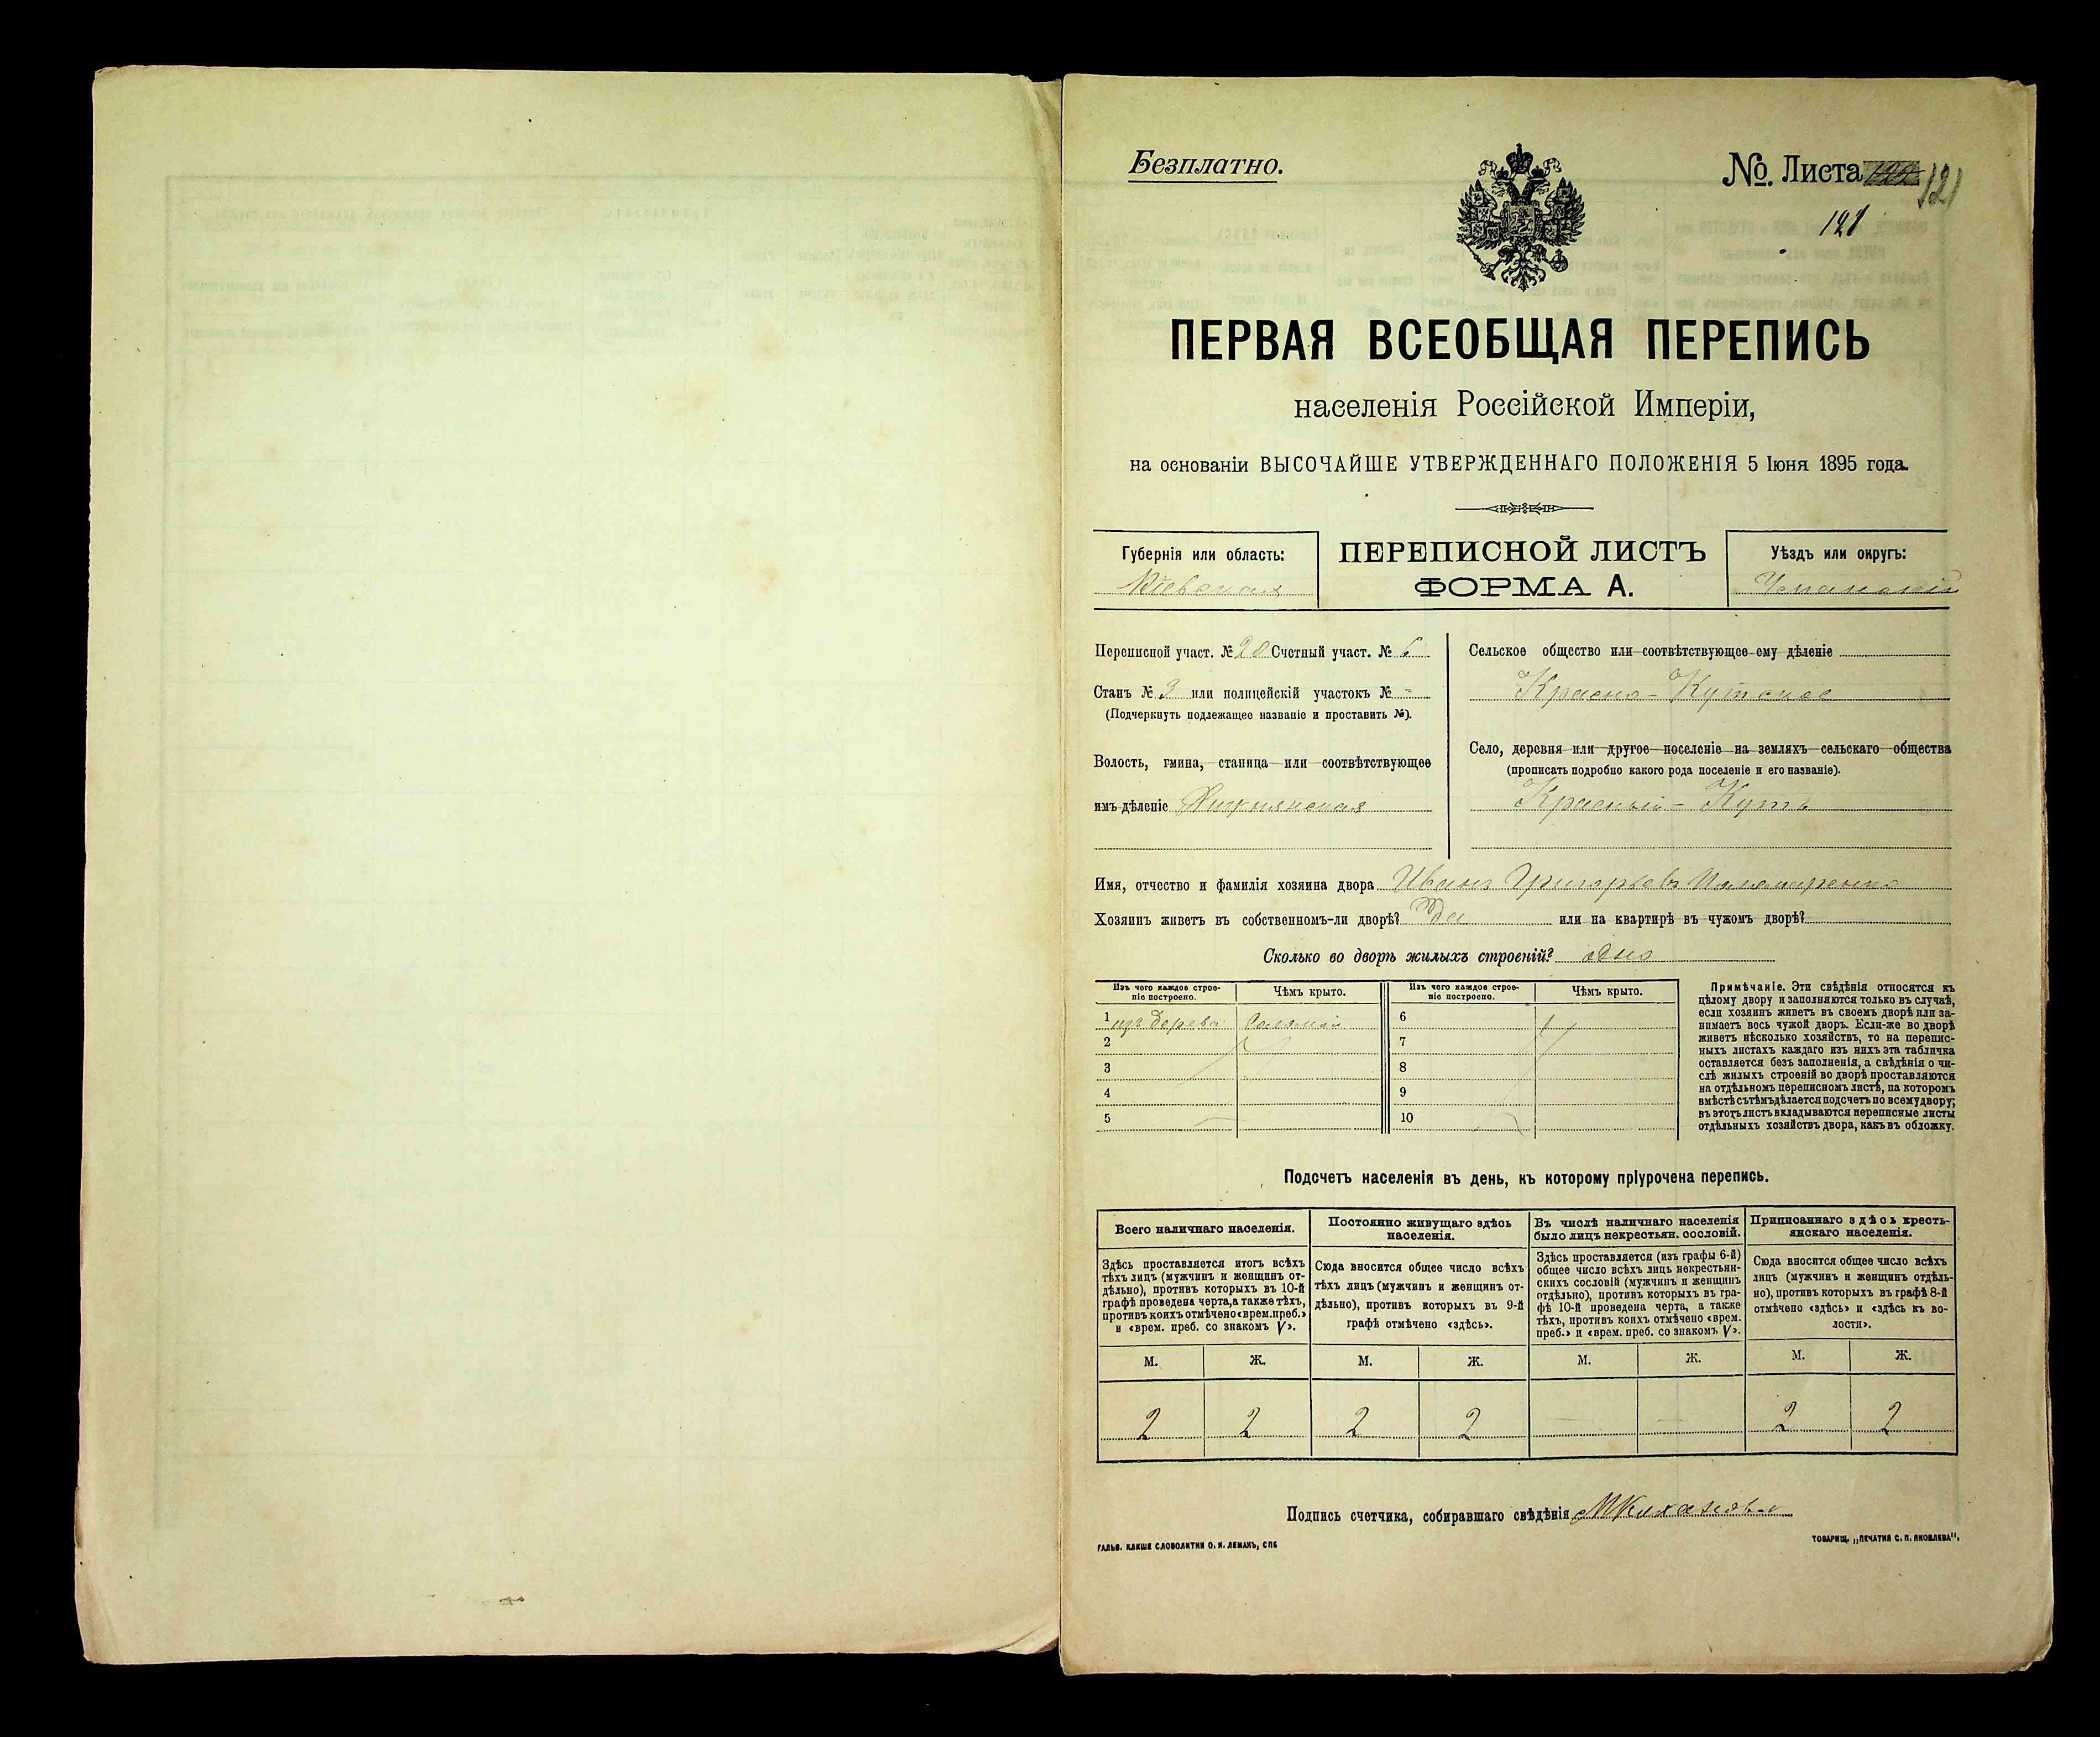 Безплатно.
№. Листа 121
121
ПЕРВАЯ ВСЕОБЩАЯ ПЕРЕПИСЬ
населенія Россійской Имперіи,
на основаніи ВЫСОЧАЙШЕ УТВЕРЖДЕННАГО ПОЛОЖЕНІЯ 5 Іюня 1895 года.
Губернія или область:
Кіевская
ПЕРЕПИСНОЙ ЛИСТЪ
ФОРМА А.
Уѣздъ или округъ:
Уманскій
Переписной участ. № 28 Счетный участ. № 6
Станъ № 3 или полицейскій участокъ № -
(Подчеркнуть подлежащее названіе и проставить №).
Волость, гмина, станица или соотвѣтствующее
имъ дѣленіе
Сельское общество или соотвѣтствующее ему дѣленіе
Красно-Кутское
Село, деревня или другое поселеніе на земляхъ сельскаго общества
(прописать подробно какого рода поселеніе и его названіе).
Красный-Кутъ
Имя, отчество и фамилія хозяина двора Иванъ Григорьевъ Паламаренко
Хозяинъ живетъ въ собственномъ-ли дворѣ? Да или на квартирѣ въ чужомъ дворѣ?
Сколько во дворѣ жилыхъ строеній? одно
Изъ чего каждое строе-
ніе построено.
Чѣмъ крыто.
Изъ чего каждое строе-
ніе построено.
Чѣмъ крыто.
1 изъ дерева Соломой
2
3
4
5
6
7
8
9
10
Примѣчаніе. Эти свѣдѣнія относятся къ
цѣлому двору и заполняются только въ случаѣ,
если хозяинъ живетъ въ своемъ дворѣ или за-
нимаетъ весь чужой дворъ. Если-же во дворѣ
живетъ нѣсколько хозяйствъ, то на перепис-
ныхъ листахъ каждаго изъ нихъ эта табличка
оставляется безъ заполненія, а свѣдѣнія о чи-
слѣ жилыхъ строеній во дворѣ проставляются
на отдѣльномъ переписномъ листѣ, на которомъ
вмѣстѣ съ тѣмъ дѣлается подсчетъ по всему двору;
въ этотъ листъ вкладываются переписные листы
отдѣльныхъ хозяйствъ двора, какъ въ обложку.
Подсчетъ населенія въ день, къ которому пріурочена перепись.
Всего наличнаго населенія.
Здѣсь проставляется итогъ всѣхъ
тѣхъ лицъ (мужчинъ и женщинъ от-
дѣльно), противъ которыхъ въ 10-й
графѣ проведена черта, а также тѣхъ,
противъ коихъ отмѣчено «врем. преб.»
и «врем. преб. со знакомъ V».
Постоянно живущаго здѣсь
населенія.
Сюда вносится общее число всѣхъ
тѣхъ лицъ (мужчинъ и женщинъ от-
дѣльно), противъ которыхъ въ 9-й
графѣ отмѣчено «здѣсь».
Въ числѣ наличнаго населенія
было лицъ некрестьян. сословій.
Здѣсь проставляется (изъ графы 6-й)
общее число всѣхъ лицъ некрестьян-
скихъ сословій (мужчинъ и женщинъ
отдѣльно), противъ которыхъ въ гра-
фѣ 10-й проведена черта, а также
тѣхъ, противъ коихъ отмѣчено «врем.
преб.» и «врем. преб. со знакомъ V».
Приписаннаго здѣсь кресть-
янскаго населенія.
Сюда вносится общее число всѣхъ
лицъ (мужчинъ и женщинъ отдѣль-
но), противъ которыхъ въ графѣ 8-й
отмѣчено «здѣсь» и «здѣсь къ во-
лости».
М. Ж. М. Ж. М. Ж. М. Ж.
2 2 2 2 — — 2 2
Подпись счетчика, собиравшаго свѣдѣнія
ГАЛЬВ. КЛИШЕ СЛОВОЛИТНИ О. И. ЛЕМАНЪ, СПБ
ТОВАРИЩ. „ПЕЧАТНЯ С. П. ЯКОВЛЕВА".